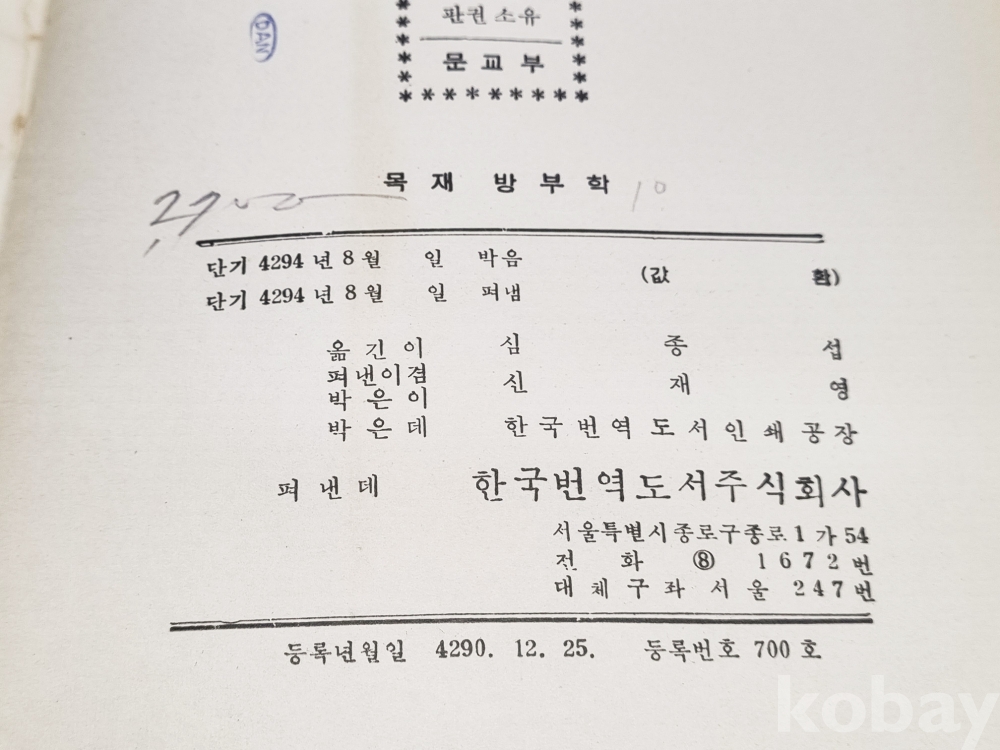 DAN
판권 소유
문교부
목재 방부학 10
단기 4294 년 8 월 일 박음
단기 4294 년 8 월 일 펴냄
(값 환)
옮긴이 심종섭
펴낸이겸
박은이 신재영
박은데 한국번역도서인쇄공장
펴낸데 한국번역도서주식회사
서울특별시종로구종로 1 가 54
전화 ⑧ 1672 번
대체구좌 서울 247 번
등록년월일 4290. 12. 25. 등록번호 700 호
kobay